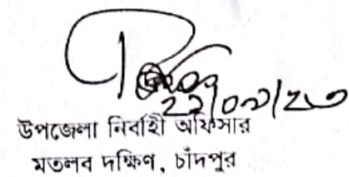 উপজেলা নির্বাহী অফিসার
মতলব দক্ষিণ, চাঁদপুর